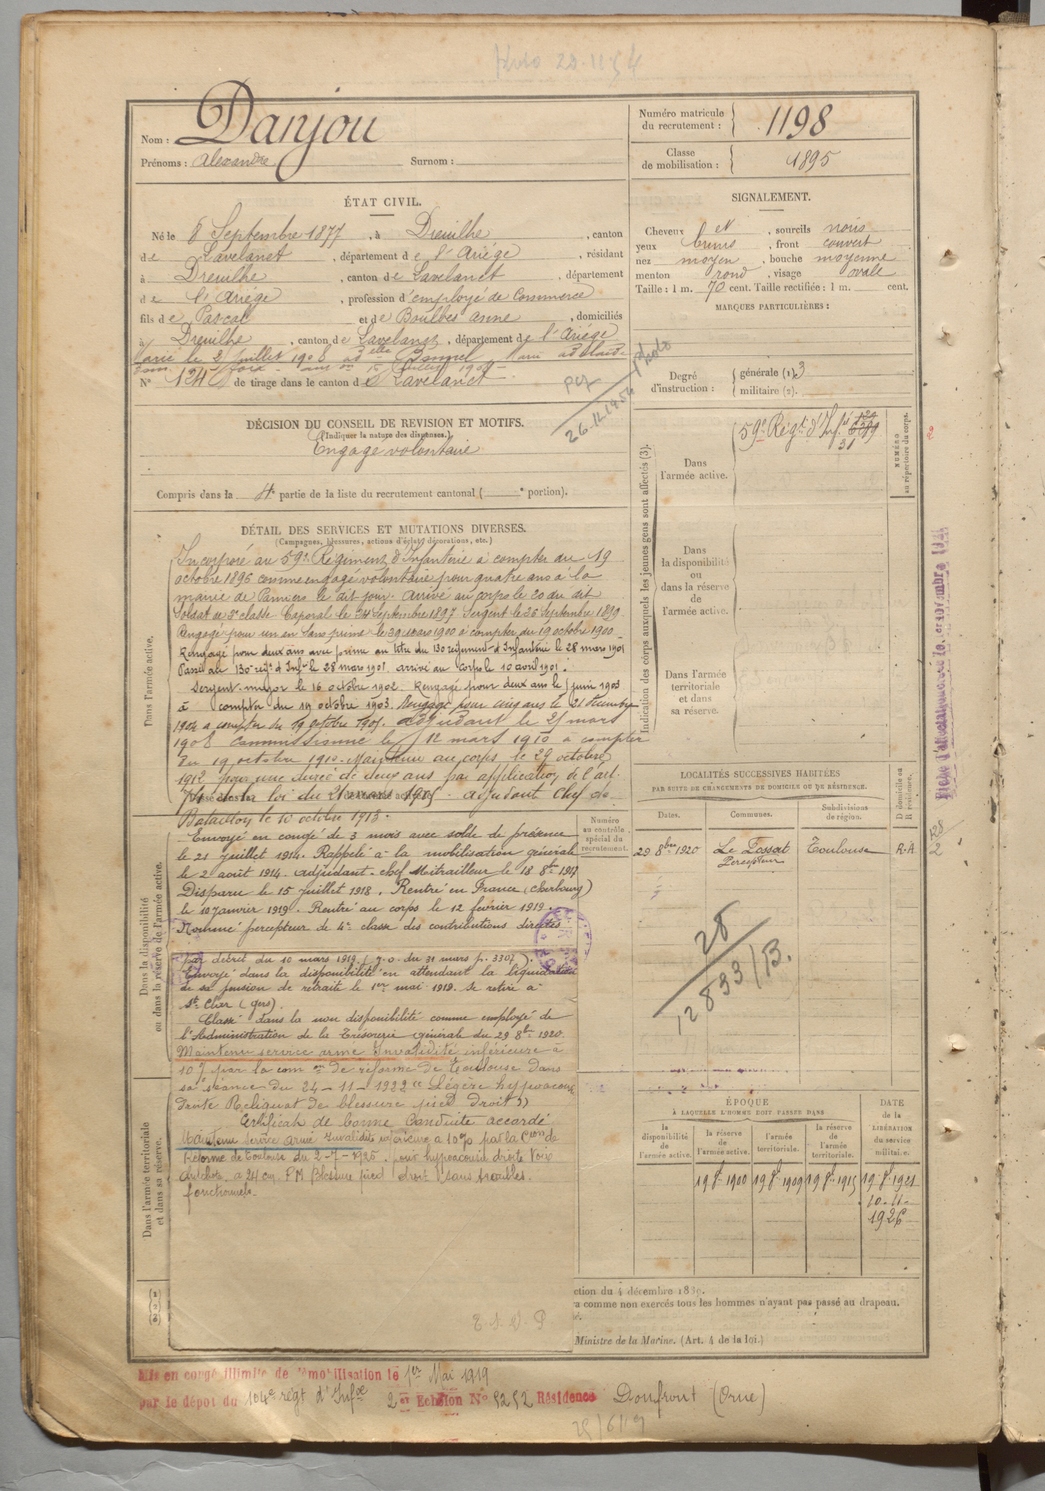 Photo 28.12.54
Nom : Danjou
Prénoms : Alexandre Surnom :
Numéro matricule du recrutement : 1198
Classe de mobilisation : 1895
ÉTAT CIVIL.
Né le 8 Septembre 1877, à Dreuilhe, canton
de Lavelanet, département de l'Ariège, résidant
à Dreuilhe, canton de Lavelanet, département
de l'Ariège, profession d'employé de Commerce
fils de Pascal et de Boulbes Anne, domiciliés
à Dreuilhe, canton de Lavelanet, département de l'Ariège
Marié le 2 Juillet 1908 à Dlle
N° 124 de tirage dans le canton de Lavelanet
26.12.1954 photo
SIGNALEMENT.
Cheveux et, sourcils noirs
yeux bruns, front couvert
nez moyen, bouche moyenne
menton rond, visage ovale
Taille : 1 m. 70 cent. Taille rectifiée : 1 m. cent.
MARQUES PARTICULIÈRES :
Degré d'instruction : générale (1) 3
militaire (2).
DÉCISION DU CONSEIL DE REVISION ET MOTIFS.
(Indiquer la nature des dispenses.)
Engagé volontaire
Compris dans la 4e partie de la liste du recrutement cantonal ( e portion).
DÉTAIL DES SERVICES ET MUTATIONS DIVERSES.
(Campagnes, blessures, actions d'éclat, décorations, etc.)
Dans l'armée active.
Incorporé au 59e Régiment d'Infanterie à compter du 19
octobre 1896 comme engagé volontaire pour quatre ans à la
mairie de Pamiers le dit jour. Arrivé au corps le 20 du dit
Soldat de 2e classe Caporal le 24 Septembre 1897 Sergent le 26 Septembre 1899
Rengagé pour un an sans prime le 29 mars 1900 à compter du 19 octobre 1900
Rengagé pour deux ans avec prime au titre du 130 régiment d'Infanterie le 28 mars 1901
Passé au 130e régt d'Infie le 28 mars 1901. arrivé au Corps le 10 avril 1901.
Sergent-major le 16 octobre 1902. Rengagé pour deux ans le 1 juin 1903
à compter du 19 octobre 1903. Rengagé pour cinq ans le 21 décembre
1904 à compter du 19 octobre 1905. Adjudant le 25 mars
1908 Commissionné le 12 mars 1910 à compter
du 19 octobre 1910. Maintenu au corps le 29 octobre
1912 pour une durée de deux ans par application de l'art.
de la loi du 21 mars 1905. adjudant chef de
Bataillon le 10 octobre 1913.
Dans la disponibilité ou dans la réserve de l'armée active.
Envoyé en congé de 3 mois avec solde de présence
le 21 juillet 1914. Rappelé à la mobilisation générale
le 2 août 1914. Adjudant-chef Mitrailleur le 18 8bre 1917
Disparu le 15 Juillet 1918. Rentré en France (Cherbourg)
le 10 Janvier 1919. Rentré au corps le 12 février 1919.
Nommé percepteur de 4e classe des contributions directes
par décret du 10 mars 1919 (J.O. du 31 mars p. 3307).
Envoyé dans la disponibilité en attendant la liquidation
de sa pension de retraite le 1er mai 1919. Se retire à
St Cher (Gers).
Classé dans la non disponibilité comme employé de
l'Administration de la Trésorerie générale du 29 8bre 1920.
Maintenu service armé Invalidité inférieure à
10% par la comon de réforme de Toulouse dans
sa séance du 24-11-1922 "Légère hypoacousie
droite Reliquat de blessure pied droit")
Certificat de bonne Conduite accordé
Maintenu service armé Invalidité inférieure à 10% par la Cion de
Réforme de Toulouse du 2-7-1925. pour hypoacousie droite Voix
chuchotée à 24 cm, P.M. Blessure pied droit sans troubles
fonctionnels.
Dans l'armée territoriale et dans sa réserve.
T. S. V. P
Indication des corps auxquels les jeunes gens sont affectés (3).
Dans l'armée active. 59e Régt d'Infie
31
NUMÉRO au répertoire du corps.
Dans la disponibilité ou dans la réserve de l'armée active.
Dans l'armée territoriale et dans sa réserve.
Numéro au contrôle spécial du recrutement.
LOCALITÉS SUCCESSIVES HABITÉES
PAR SUITE DE CHANGEMENTS DE DOMICILE OU DE RÉSIDENCE.
Dates. Communes. Subdivisions de région. D domicile ou R résidence.
29 8bre 1920 Le Fossat Percepteur Toulouse R.A.
28
12833/B.
ÉPOQUE
À LAQUELLE L'HOMME DOIT PASSER DANS
la disponibilité de l'armée active. la réserve de l'armée active. l'armée territoriale. la réserve de l'armée territoriale.
DATE de la LIBÉRATION du service militaire.
19 8b 1900 19 8bre 1909 19 8b 1915 19 8b 1921
10-11-1926
ction du 4 décembre 1889.
a comme non exercés tous les hommes n'ayant pas passé au drapeau.
Ministre de la Marine. (Art. 4 de la loi.)
Mis en congé illimité de démobilisation le 1er Mai 1919
par le dépôt du 104e régt d'Infie 2me Echelon N° 5252 Résidence Domfront (Orne)
25/6/19